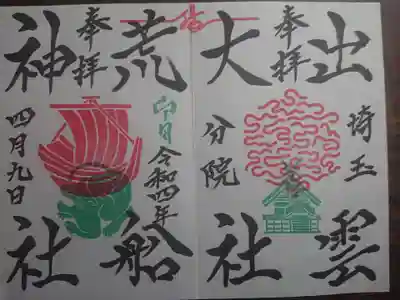 出雲
埼玉
奉拝
大社
分院
荒船
令和四年
卯月
奉拝
神社
四月九日